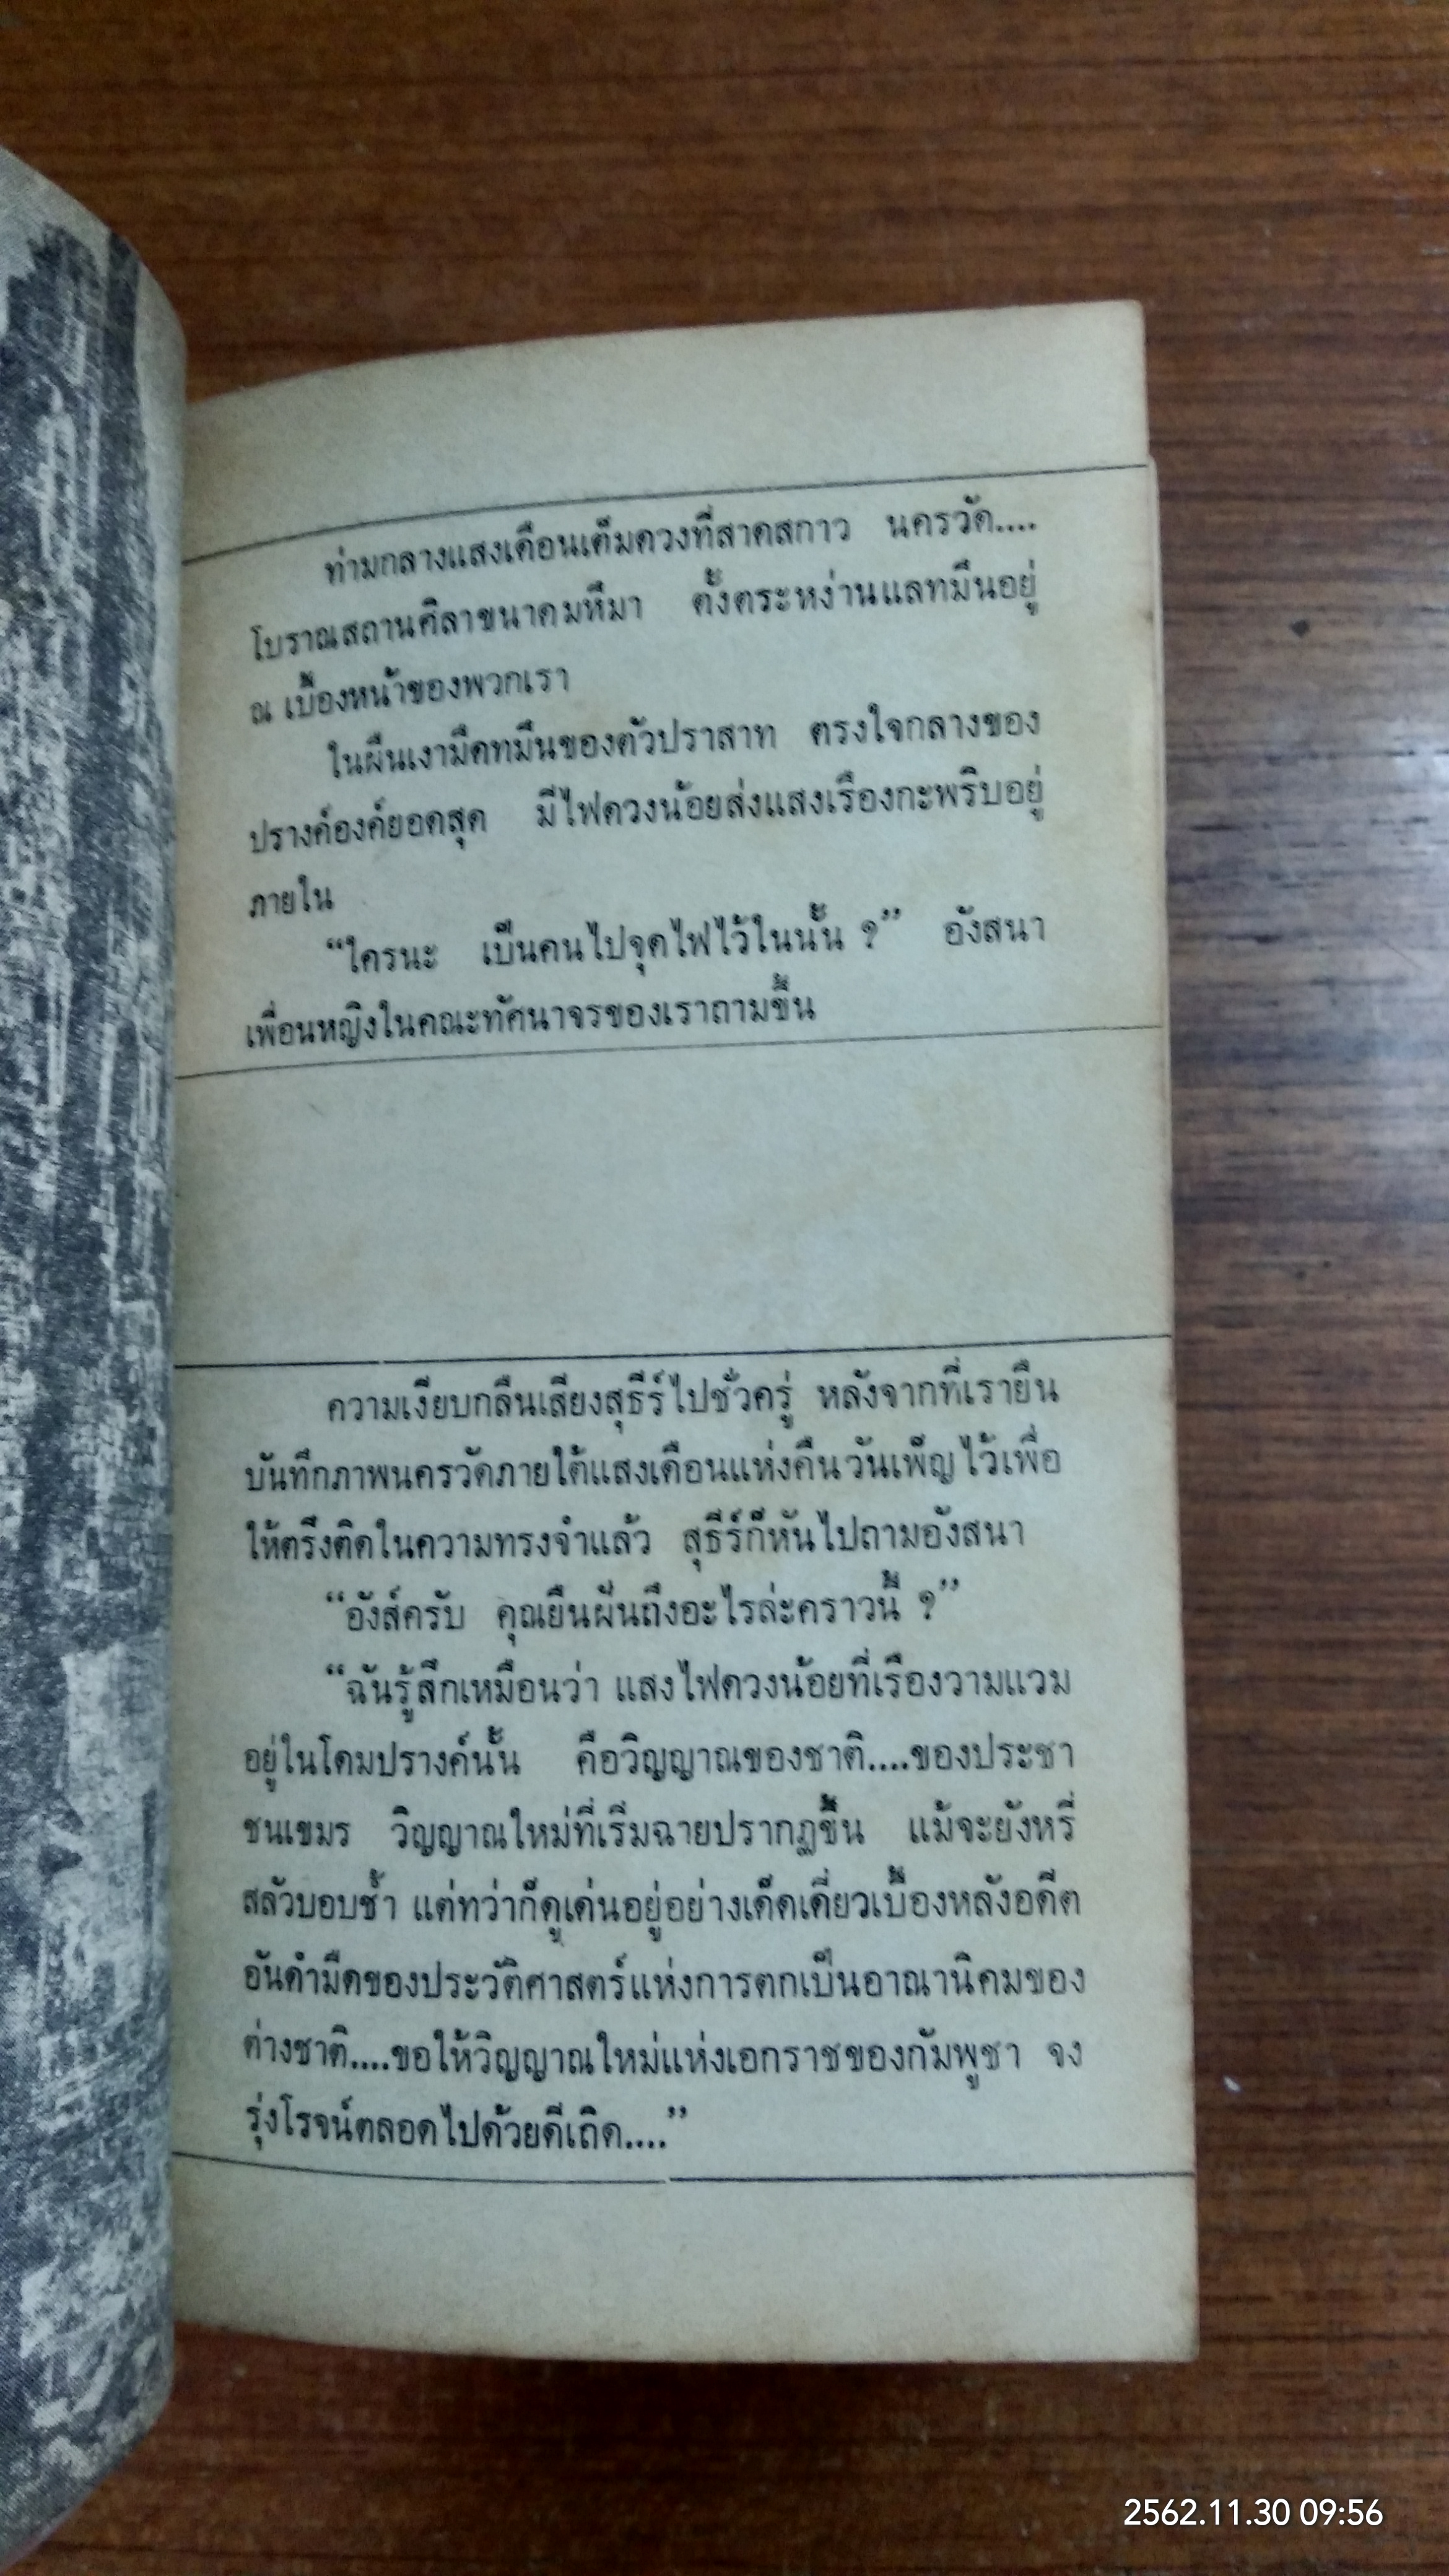 ท่ามกลางแสงเดือนเต็มดวงที่สาดสกาว นครวัด....
โบราณสถานศิลาขนาดมหึมา ตั้งตระหง่านแลทมึนอยู่
ณ เบื้องหน้าของพวกเรา
ในผืนเงามืดทมึนของตัวปราสาท ตรงใจกลางของ
ปรางค์องค์ยอดสุด มีไฟดวงน้อยส่งแสงเรืองกะพริบอยู่
ภายใน
“ใครนะ เป็นคนไปจุดไฟไว้ในนั้น ?” อังสนา
เพื่อนหญิงในคณะทัศนาจรของเราถามขึ้น
ความเงียบกลืนเสียงสุธีร์ไปชั่วครู่ หลังจากที่เรายืน
บันทึกภาพนครวัดภายใต้แสงเดือนแห่งคืนวันเพ็ญไว้เพื่อ
ให้ตรึงติดในความทรงจำแล้ว สุธีร์ก็หันไปถามอังสนา
“อังส์ครับ คุณยืนฝันถึงอะไรล่ะคราวนี้ ?”
“ฉันรู้สึกเหมือนว่า แสงไฟดวงน้อยที่เรืองวามแวม
อยู่ในโดมปรางค์นั้น คือวิญญาณของชาติ....ของประชา
ชนเขมร วิญญาณใหม่ที่เริ่มฉายปรากฏขึ้น แม้จะยังหรี่
สลัวบอบช้ำ แต่ทว่าก็ดูเด่นอยู่อย่างเด็ดเดี่ยวเบื้องหลังอดีต
อันดำมืดของประวัติศาสตร์แห่งการตกเป็นอาณานิคมของ
ต่างชาติ....ขอให้วิญญาณใหม่แห่งเอกราชของกัมพูชา จง
รุ่งโรจน์ตลอดไปด้วยดีเถิด....”
2562.11.30 09:56